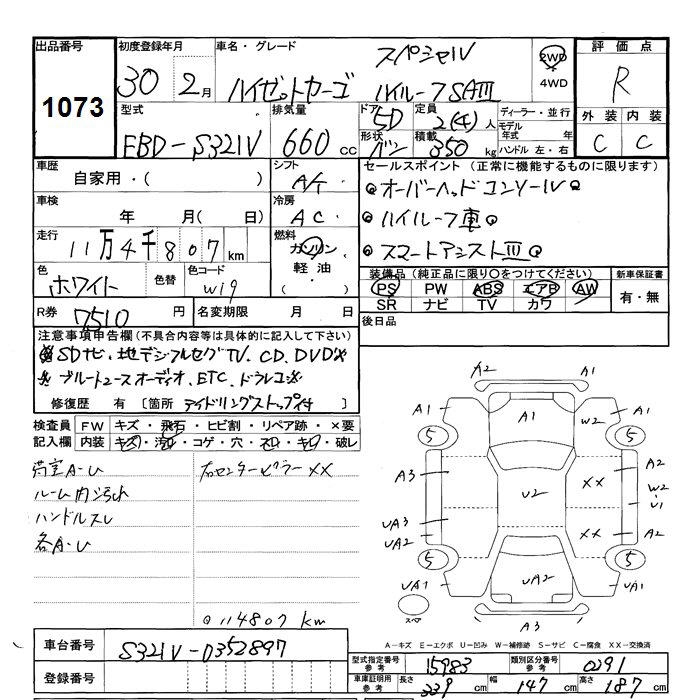 出品番号
1073
初度登録年月
30年 2月
車名・グレード
スペシャル
ハイゼットカーゴ ハイルーフSAⅢ
2WD
4WD
評価点
R
外装 内装
C C
型式
EBD-S321V
排気量
660 cc
ドア
5D
形状
バン
定員
2(4)人
積載
350 kg
ディーラー・並行
モデル年式 年
ハンドル 左・右
車歴
自家用・( )
シフト
A/T
車検
年 月( 日)
冷房
AC
走行
11万4千807km
燃料
ガソリン
軽油・
( )
色
ホワイト
色替
色コード
W19
R券
7510円
名変期限 月 日
セールスポイント(正常に機能するものに限ります)
オーバーヘッドコンソール
ハイルーフ車
スマートアシストⅢ
装備品(純正品に限り○をつけてください)
PS PW ABS エアB AW
SR ナビ TV カワ
新車保証書
有・無
後日品
注意事項申告欄(不具合内容等は具体的に記入して下さい)
※SDナビ、地デジフルセグTV、CD、DVD※
※ブルートゥースオーディオ、ETC、ドラレコ※
修復歴 有 [箇所 アイドリングストップ付]
検査員 FW キズ・飛石・ヒビ割・リペア跡・×要
記入欄 内装 キズ・汚れ・コゲ・穴・スレ・キレ・破レ
荷室A・U
ルーム内汚れ
ハンドルスレ
各A・U
右センターピラーXX
114807km
A2 A1
A1 5 A1 W2 5
A3 U2 XX A2
W2
U1
UA3
UA2 XX A2
5 5
UA1 UA2 UA1
スペア
A3
A-キズ E-エクボ U-凹み W-補修跡 S-サビ C-腐食 XX-交換済
車台番号
S321V-0352897
登録番号
型式指定番号
参考
15983
類別区分番号
参考
0291
車庫証明用
参考
長さ 339cm 幅 147cm 高さ 187cm